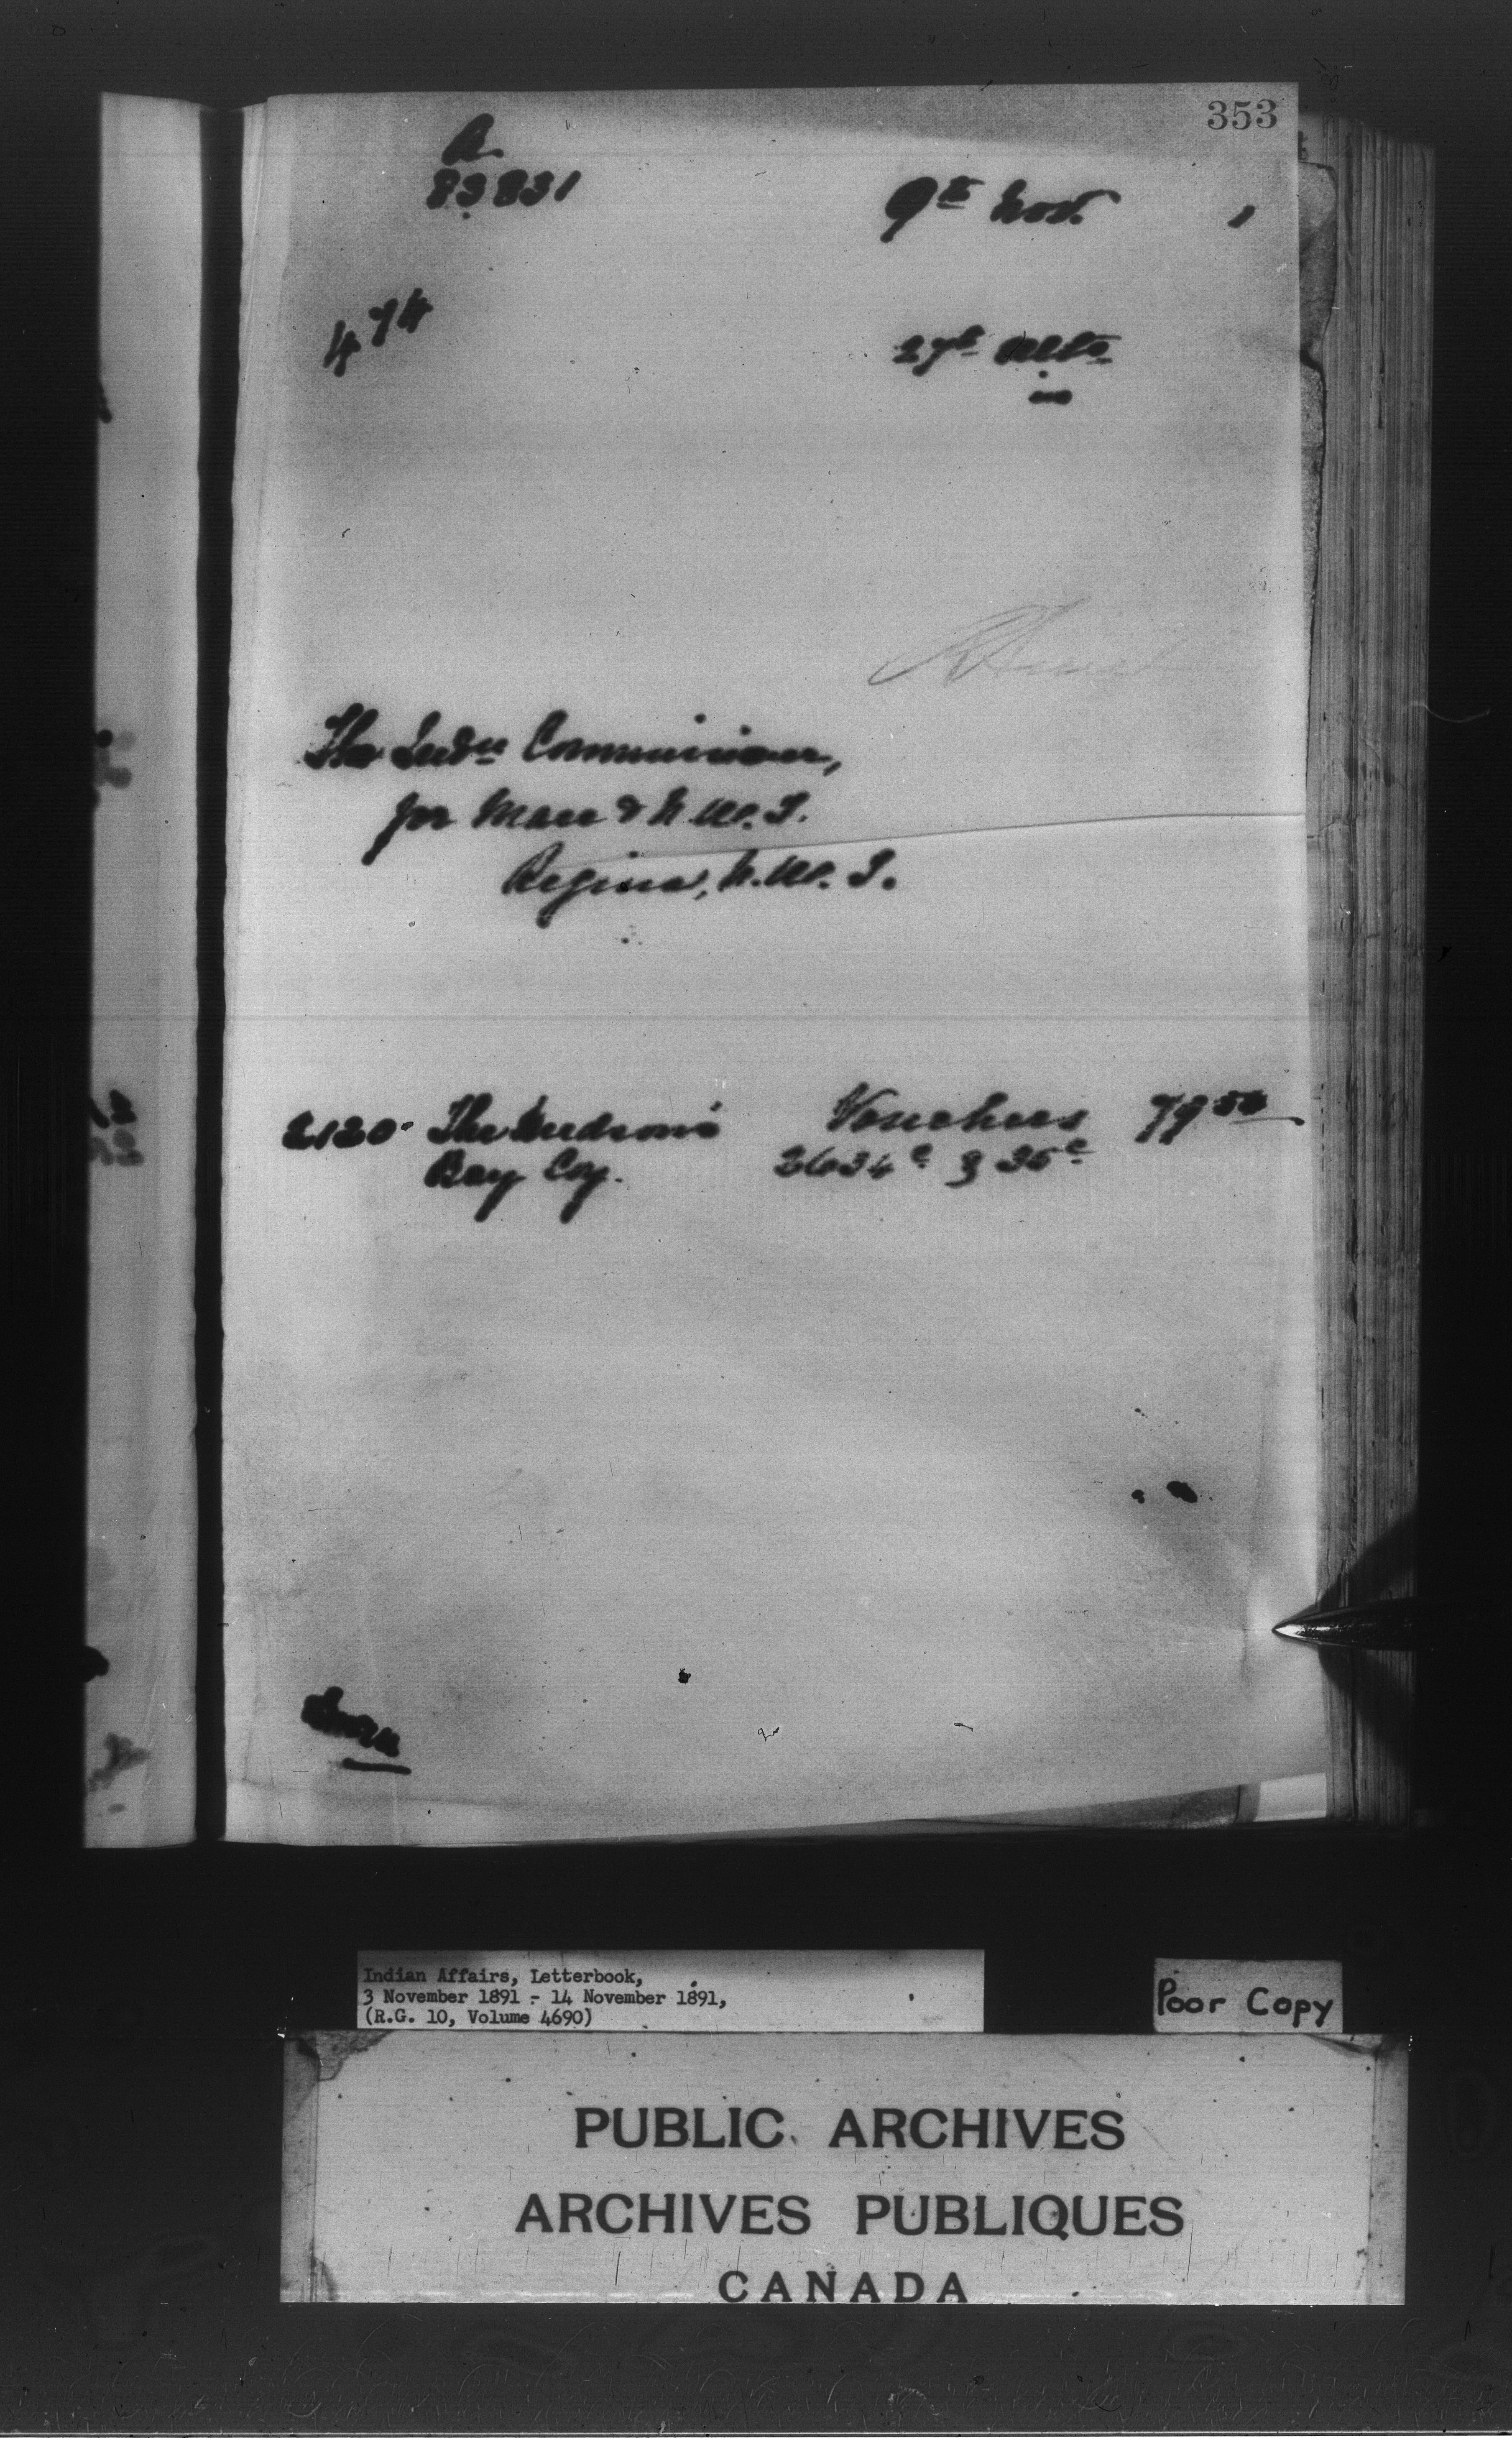 353
A
83831
9th Nov. 1
474
27th Ulto
in
The Indn Commissioner,
for Man & N.W.T.
Regina, N.W.T.
2120. The Hudson's Vouchers 79 50
Bay Coy. 2634c & 35c
Indian Affairs, Letterbook,
3 November 1891 - 14 November 1891,
(R.G. 10, Volume 4690)
Poor Copy
PUBLIC ARCHIVES
ARCHIVES PUBLIQUES
CANADA